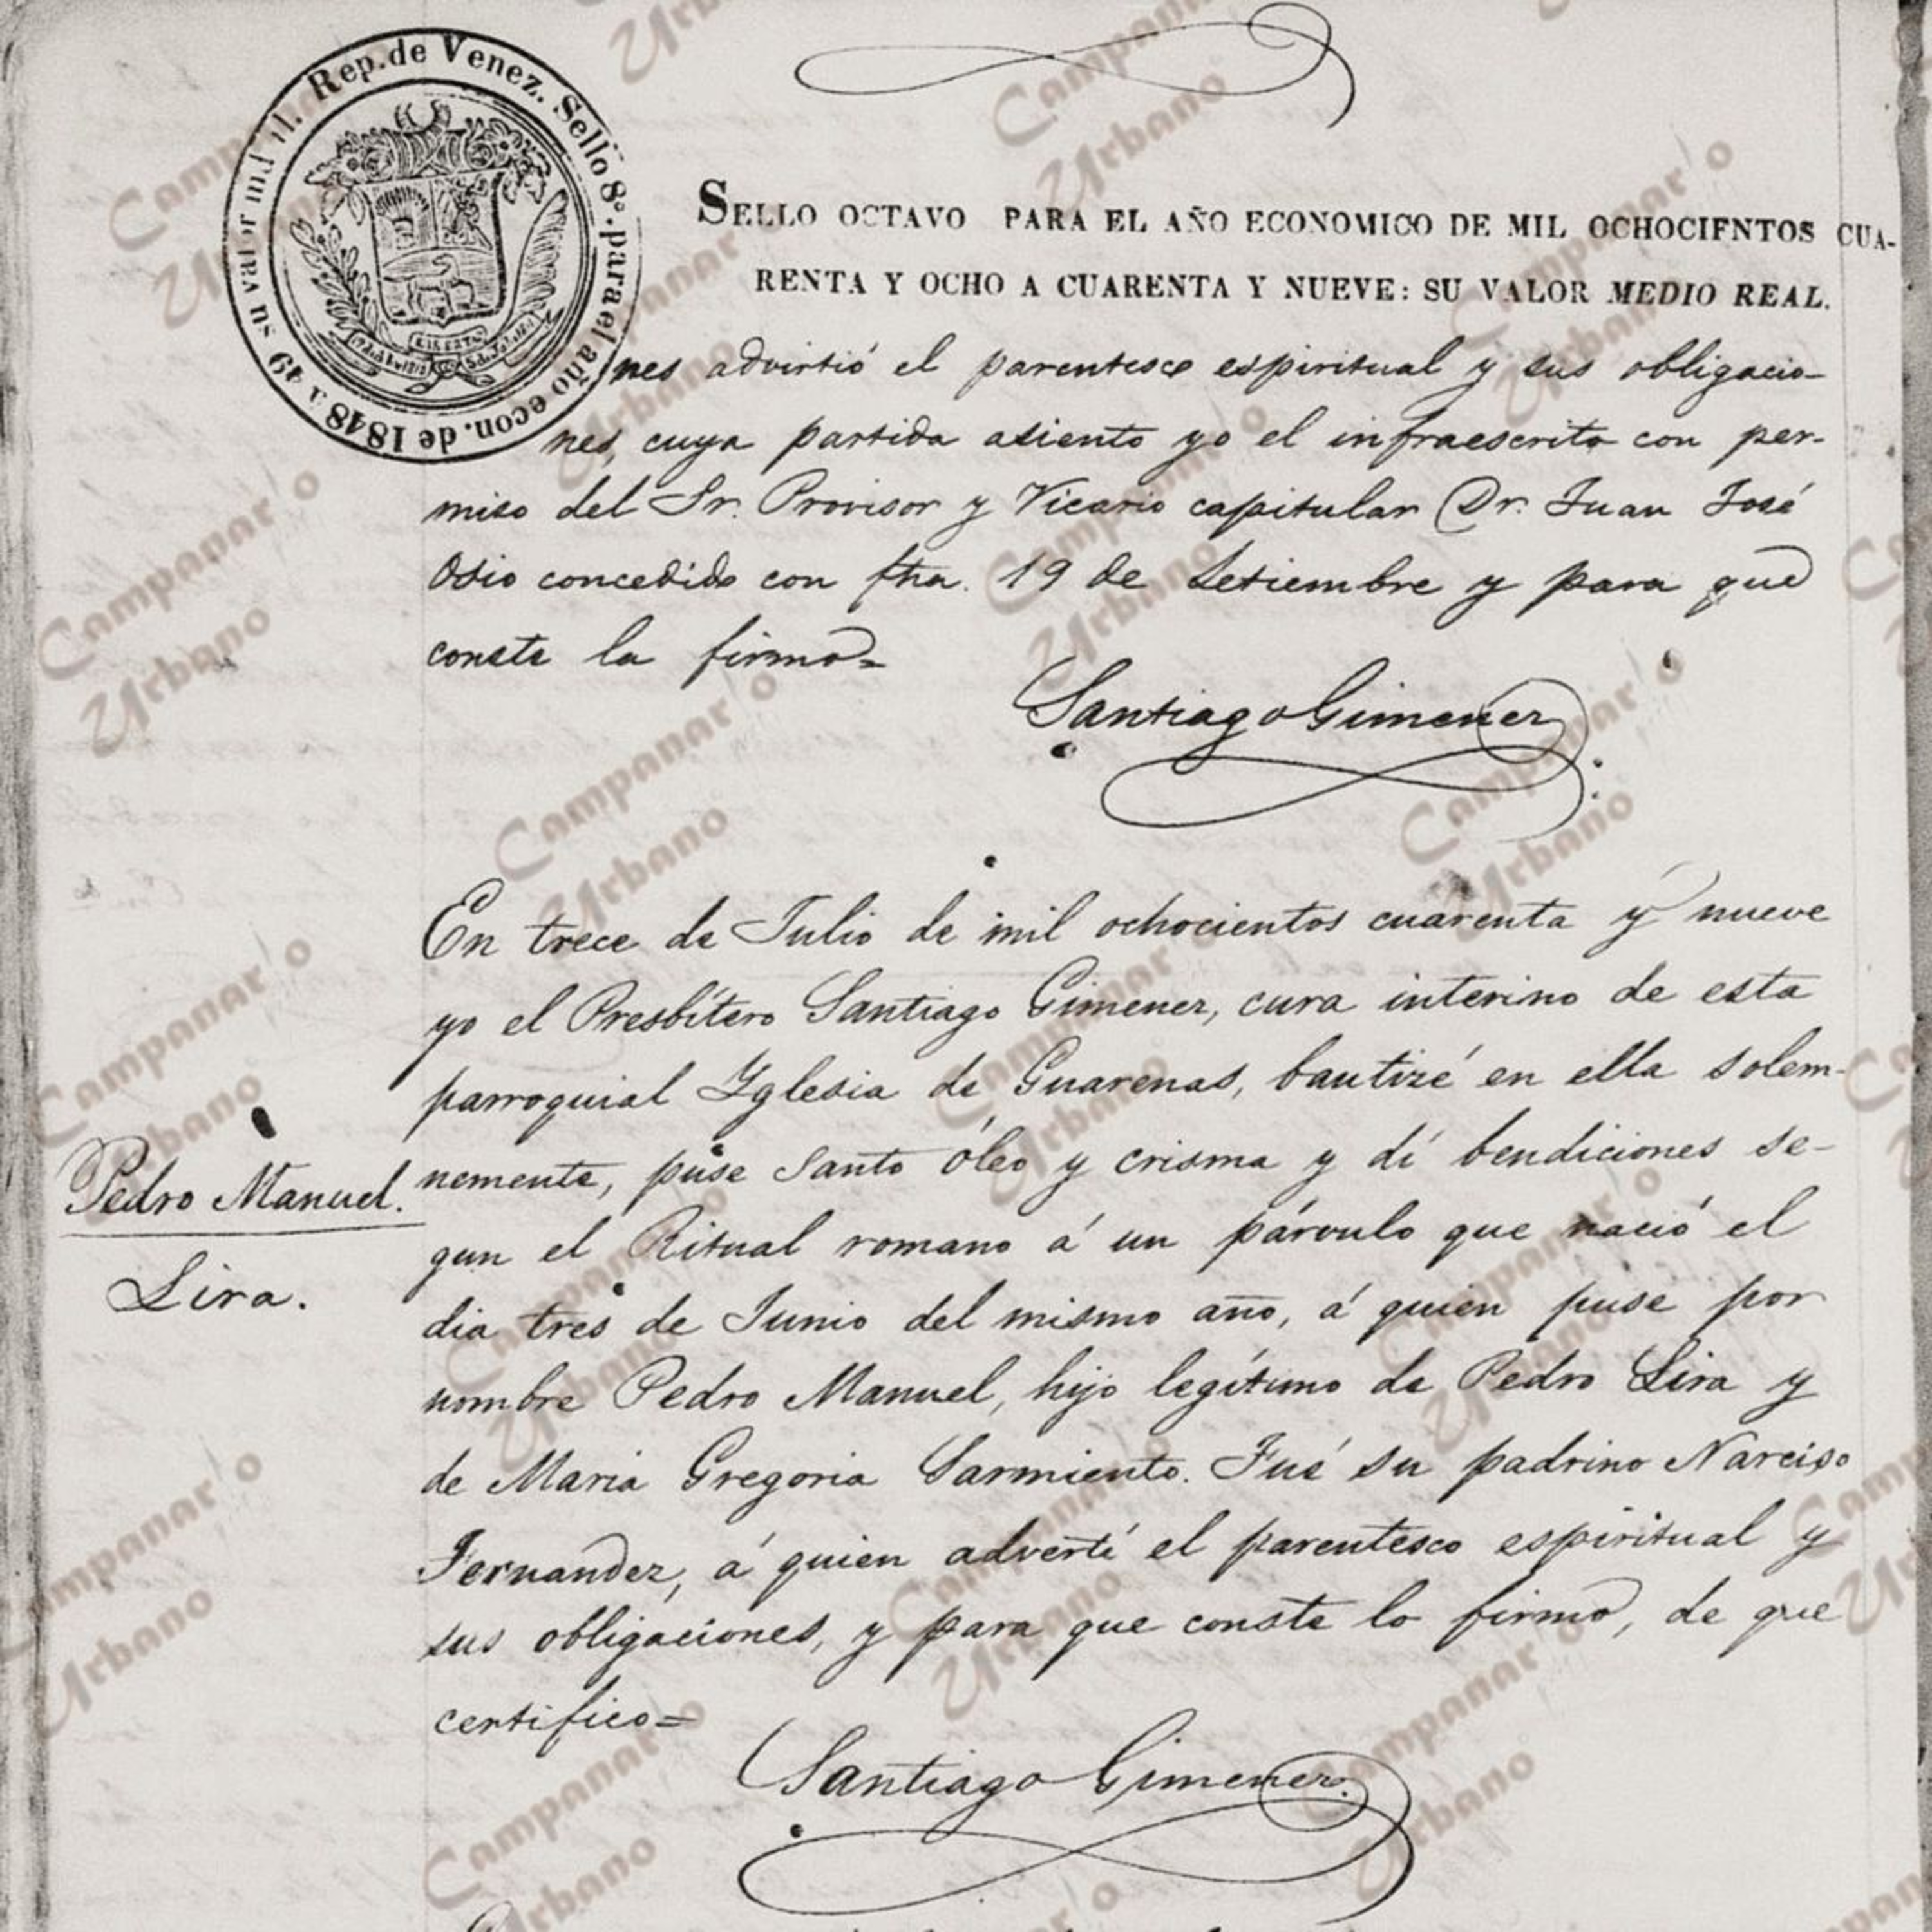 Rep. de Venez. Sello 8º. para el año econ. de 1848 a 49 su valor md. rl.
LIBERTAD
SELLO OCTAVO PARA EL AÑO ECONOMICO DE MIL OCHOCIENTOS CUA-
RENTA Y OCHO A CUARENTA Y NUEVE: SU VALOR MEDIO REAL.
nes advirtió el parentesco espiritual y sus obligacio-
nes, cuya partida asiento yo el infraescrito con per-
miso del Sr. Provisor y Vicario capitular Dr. Juan José
Osio concedido con fha. 19 de Setiembre y para que
conste la firmo=
Santiago Gimenez
En trece de Julio de mil ochocientos cuarenta y nueve
yo el Presbítero Santiago Gimenez, cura interino de esta
parroquial Yglesia de Guarenas, bautizé en ella solem-
nemente, puse santo óleo y crisma y dí bendiciones se-
gun el Ritual romano á un párvulo que nació el
dia tres de Junio del mismo año, á quien puse por
nombre Pedro Manuel, hijo legítimo de Pedro Lira y
de Maria Gregoria Sarmiento. Fué su padrino Narciso
Fernandez, á quien advertí el parentesco espiritual y
sus obligaciones, y para que conste lo firmo, de que
certifico=
Santiago Gimenez.
Pedro Manuel.
Lira.
Campanario
Urbano